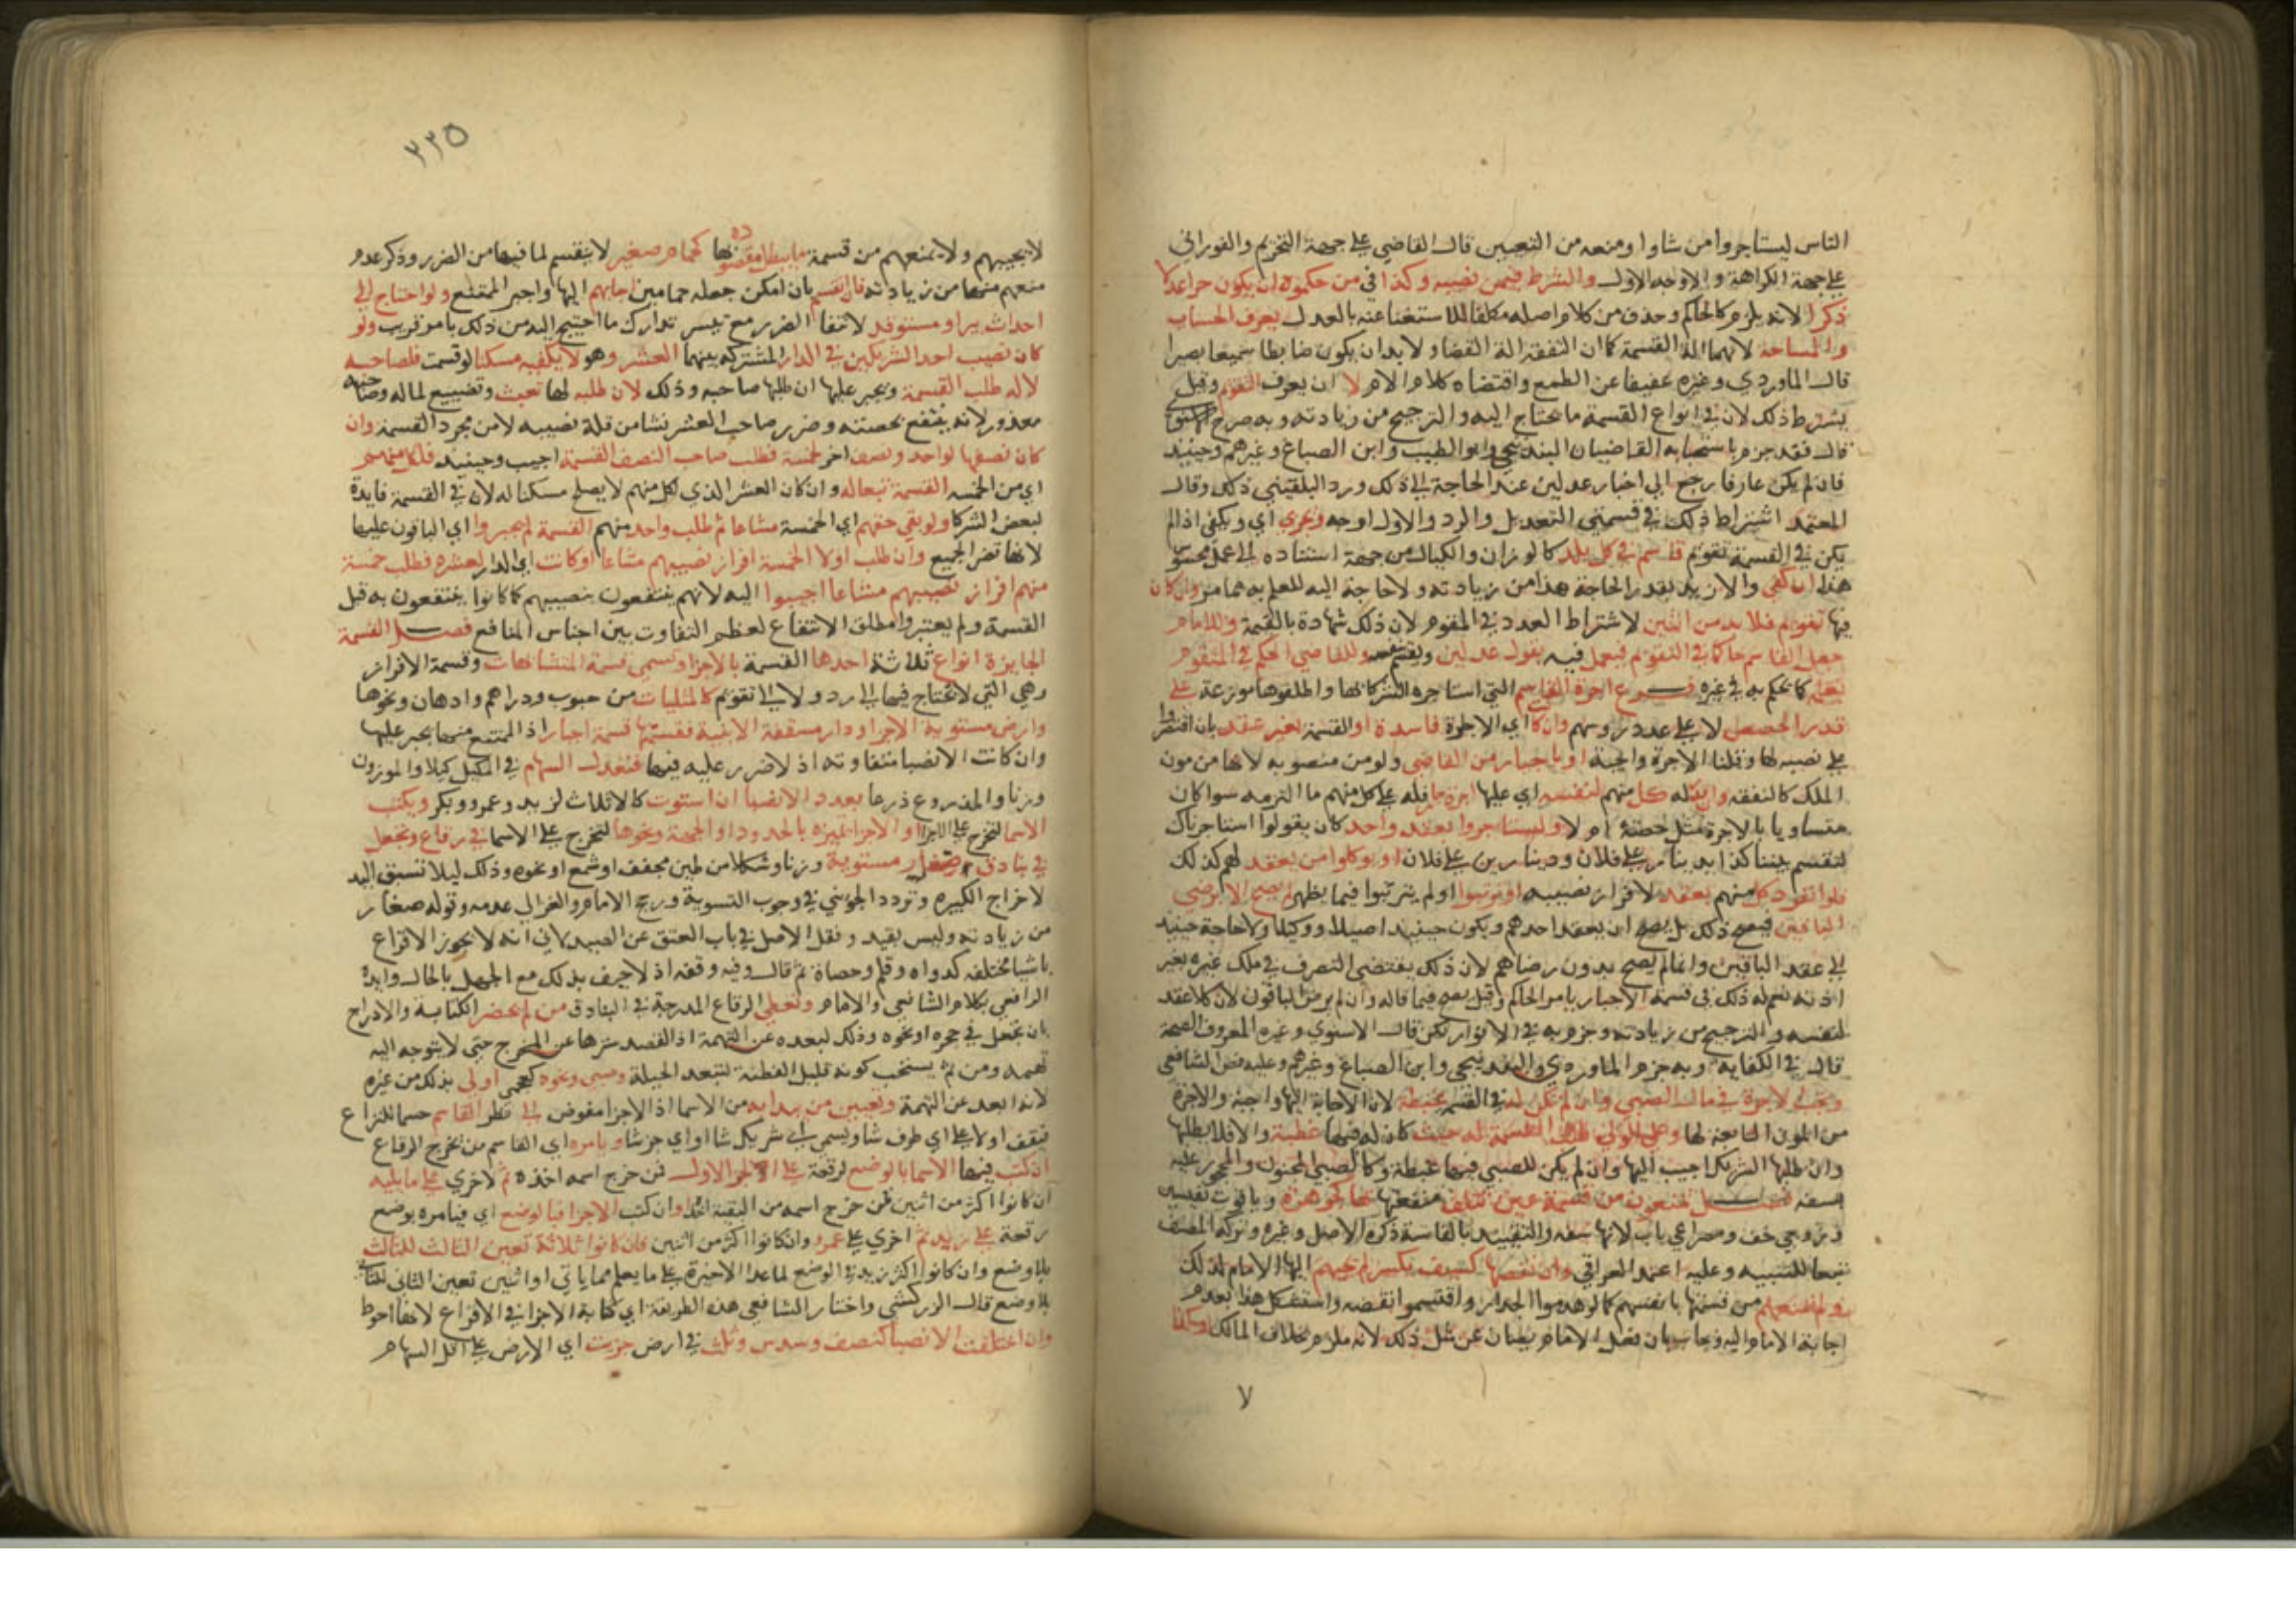 الناس ليستاجروا من شاوا ومنعه من التعيين قال القاضي على جهة التحريم والفوراني
على جهة الكراهة والاوجه الاول والشرط فيمن نصبه وكذا في من حكموه ان يكون حرا عدلا
ذكرا لانه يلزم كالحاكم وحذف من كلام اصله مكلفا للاستغنا عنه بالعدل يعرف الحساب
والمساحة لانهما الة القسمة كما ان الفقه الة القضا ولا بد ان يكون ضابطا سميعا بصيرا
قال الماوردي وغيره عفيفا عن الطمع واقتضاه كلام الام لا ان يعرف التقويم وقيل
يشترط ذلك لان في انواع القسمة ما يحتاج اليه والترجيح من زيادته وبه صرح
قال فقد جزم باستحبابه القاضيان البندنيجي وابو الطيب وابن الصباغ وغيرهم وحينيذ
فان لم يكن عارفا رجع الى اخبار عدلين عند الحاجة الى ذلك ورد البلقيني ذلك وقال
المعتمد اشتراط ذلك في قسمتي التعديل والرد والاول اوجه ويجزي اي ويكفي اذا لم
يكن في القسمة تقويم قاسم في كل بلد كالوزان والكيال من جهة استناده الى عمل محسوس
هذا ان كفى والا زيد بقدر الحاجة هذا من زيادته ولا حاجة اليه للعلم به مما مر وان كان
فيها تقويم فلا بد من اثنين لاشتراط العدد في المقوم لان ذلك شهادة بالقيمة وللامام
جعل القاسم حاكما في التقويم فيعمل فيه بقول عدلين ويقسم وللقاضي الحكم في التقويم
بعلمه كما يحكم به في غيره فرع اجرة القاسم التي استاجره الشركا بها واطلقوها موزعة على
قدر الحصص لا على عدد روسهم وان كا اي الاجارة فاسدة او القسمة بغير عقد بان اقتصروا
على نصبه لها وقلنا الاجرة واجبة او باجبار من القاضي ولو من منصوبه لانها من مون
الملك كالنفقة وان كل منهم لنفسه اي عليها اجرة جاز فله على كل منهم ما التزمه سوا كان
متساويا بالاجرة مثل حصته ام لا وليستاجروا بعقد واحد كان يقولوا استاجرناك
لتقسم بيننا كذا بدينار على فلان ودينارين على فلان او يوكلوا من يعقد لهم كذلك
فلو انفرد كل منهم بعقد لافراز نصيبه او ترتبوا او لم يترتبوا فيما يظهر لم يصح الا برضى
الباقين فيصح ذلك بل يصح ان يعقد احدهم ويكون حينيذ اصيلا ووكيلا ولا حاجة حينيذ
الى عقد الباقين وانما لم يصح بدون رضاهم لان ذلك يقتضي التصرف في ملك غيره بغير
اذنه نعم له ذلك في قسمة الاجبار بامر الحاكم وقيل يصح فيما قاله وان لم يرض الباقون لان كلا عقد
لنفسه والترجيح من زيادته وجزم به في الانوار لكن قال الاسنوي وغيره المعروف الصحة
قال في الكفاية وبه جزم الماوردي والبندنيجي وابن الصباغ وغيرهم وعليه نص الشافعي
وتجب الاجرة في مال الصبي وان لم تكن له في القسمة غبطة لان الاجابة اليها واجبة والاجرة
من المون التابعة لها وعلى الولي طلب القسمة له حيث كان له فيها غبطة والا فلا يطلبها
وان طلبها الشريك اجيب اليها وان لم يكن للصبي فيها غبطة وكالصبي المجنون والمحجور عليه
بسفه فصل يمنعون من قسمة عين تتلف منفعتها بها كجوهرة وياقوت نفيسين
وزوجي خف ومصراعي باب لانها سفه والتقييد بالنفاسة ذكره الاصل وغيره وتركه المصنف
تبعا للتنبيه وعليه اعتمد العراقي وان نقصها كسيف يكسر لم يجبهم اليها الامام لذلك
ولم يمنعهم من قسمتها بانفسهم كما لو هدموا الجدار واقتسموا نقضه واستشكل هذا بعدم
اجابة الامام اليه ويجاب بان فعل الامام يصان عن مثل ذلك لانه ملزم بخلاف المالك وكذا
لا
٢٢٥
لا يجيبهم ولا يمنعهم من قسمة ما يبطل مقصوده بها كحمام صغير لا ينقسم لما فيها من الضرر وذكر عدم
منعهم منها من زيادته قال فان امكن جعله حمامين اجابهم اليها واجبر الممتنع ولو احتاج الى
احداث بير او مستوقد لانتفا الضرر مع تيسر تدارك ما احتيج اليه من ذلك بامر قريب ولو
كان نصيب احد الشريكين في الدار المشتركة بينهما العشر وهو لا يكفيه مسكنا لو قسمت فلصاحبه
لا له طلب القسمة ويجبر عليها ان طلبها صاحبه وذلك لان طلبه لها تعنت وتضييع لماله وصاحبه
معذور لانه ينتفع بحصته وضرر صاحب العشر نشا من قلة نصيبه لا من مجرد القسمة وان
كان نصفها لواحد ونصف اخر لخمسة فطلب صاحب النصف القسمة اجيب وحينيذ فلكل منهم
اي من الخمسة القسمة تبعا له وان كان العشر الذي لكل منهم لا يصلح مسكنا له لان في القسمة فايدة
لبعض الشركا ولو بقي حقهم اي الخمسة مشاعا ثم طلب واحد منهم القسمة لم يجبروا اي الباقون عليها
لانها تضر الجميع وان طلب اولا الخمسة افراز نصيبهم مشاعا او كانت اي الدار لعشرة فطلب خمسة
منهم افراز نصيبهم مشاعا اجيبوا اليه لانهم ينتفعون بنصيبهم كما كانوا ينتفعون به قبل
القسمة ولم يعتبروا مطلق الانتفاع لعظم التفاوت بين اجناس المنافع فصل القسمة
الجايزة انواع ثلاثة احدها القسمة بالاجزا وتسمى قسمة المتشابهات وقسمة الافراز
وهي التي لا تحتاج فيها الى رد ولا الى تقويم كالمثليات من حبوب ودراهم وادهان ونحوها
وارض مستوية الاجزا ودار متفقة الابنية فقسمتها قسمة اجبار اذ الممتنع منها يجبر عليها
وان كانت الانصبا متفاوتة اذ لا ضرر عليه فيها فتعدل السهام في المكيل كيلا والموزون
وزنا والمذروع ذرعا بعدد الانصبا ان استوت كالاثلاث لزيد وعمرو وبكر ويكتب
الاسما لتخرج على الاجزا او الاجزا مميزة بالحدود او الجهة ونحوها لتخرج على الاسما في رقاع وتجعل
في بنادق صغار مستوية وزنا وشكلا من طين مجفف او شمع او نحوه وذلك ليلا تسبق اليد
لاخراج الكبيرة وتردد الجويني في وجوب التسوية ورجح الامام والغزالي عدمه وقوله صغار
من زيادته وليس بقيد ونقل الاصل في باب العتق عن الصيدلاني انه لا يجوز الاقراع
باشيا مختلفة كدواة وقلم وحصاة ثم قال وفيه وقفة اذ لا حيف بذلك مع الجهل بالحال وايده
الرافعي بكلام الشافعي والامام وتعطى الرقاع المدرجة في البنادق من لم يحضر الكتابة والادراج
بان تجعل في حجره او نحوه وذلك لبعده عن التهمة اذ القصد سترها عن المخرج حتى لا يتوجه اليه
تهمة ومن ثم يستحب كونه قليل الفطنة لتبعد الحيلة وصبي ونحوه كعجمي اولى بذلك من غيره
لانه ابعد عن التهمة وتعيين من يبدا به من الاسما او الاجزا مفوض الى نظر القاسم حسما للنزاع
فيقف اولا على اي طرف شا ويسمي اي شريك شا او اي جز شا ويامره اي القاسم من يخرج الرقاع
ان كتب فيها الاسما بالوضع لرقعة على الجز الاول فمن خرج اسمه اخذه ثم لاخرى على ما يليه
ان كانوا اكثر من اثنين فمن خرج اسمه من البقية اخذه وان كتب الاجزا فبالوضع اي فيامره بوضع
رقعة على زيد ثم اخرى على عمرو وان كانوا اكثر من اثنين فان كانوا ثلاثة تعين الثالث للثالث
بلا وضع وان كانوا اكثر زيد في الوضع لما عدا الاخيرة على ما يعلم مما ياتي او اثنين تعين الثاني للثاني
بلا وضع قال الزركشي واختار الشافعي هذه الطريقة اي كتابة الاجزا في الاقراع لانها احوط
وان اختلفت الانصبا كنصف وسدس وثلث في ارض جزيت اي الارض على اقل السهام